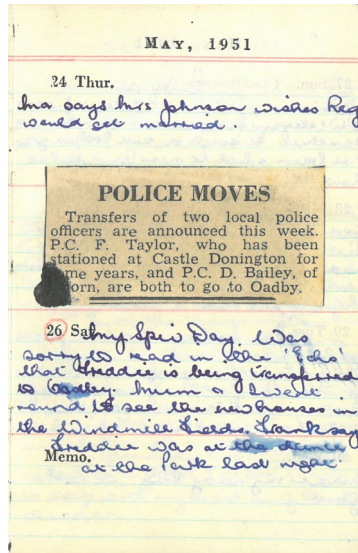 MAY, 1951
24 Thur.
Ma says Mrs Johnson wishes Reg
would get married.
POLICE MOVES
Transfers of two local police
officers are announced this week.
P.C. F. Taylor, who has been
stationed at Castle Donington for
me years, and P.C. D. Bailey, of
orn, are both to go to Oadby.
26 Sat
My Spiv Day. Was
sorry to read in the 'Echo'
that Freddie is being transferred
to Oadby. Mum & I went
round to see the new houses in
the Windmill Fields. Frank says
Freddie was at the dance
Memo.
at the Park last night.